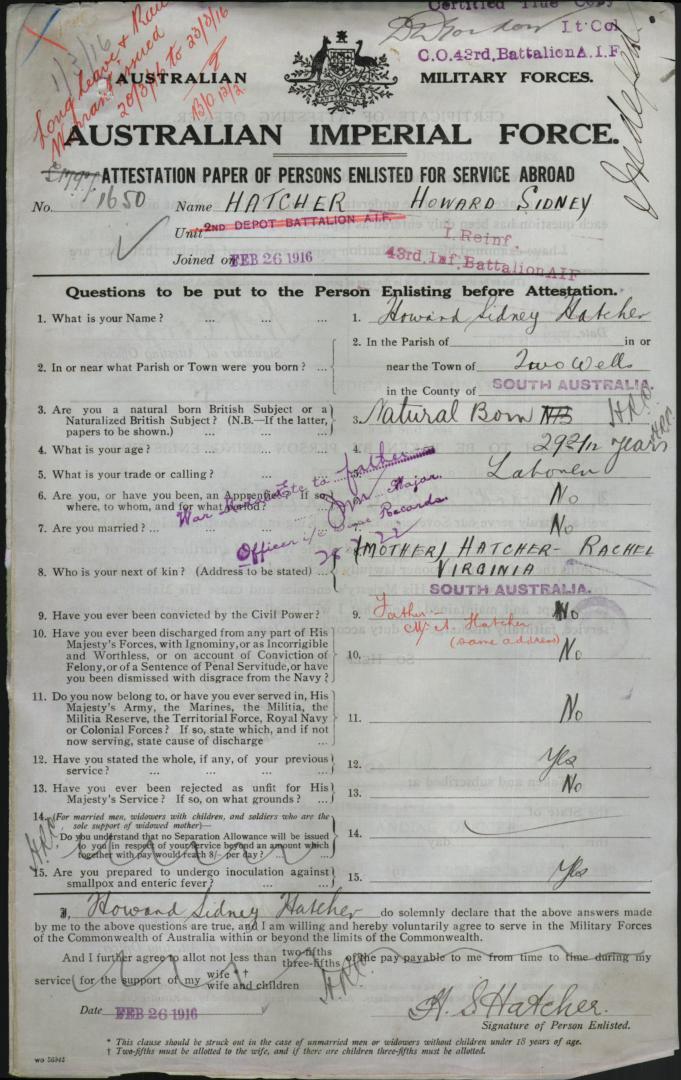 Certified True Copy
Lt Col
C.O. 43rd. Battalion A.I.F
1/3/16
Long Leave &
Warrant issued
20/3/16 to 23/3/16
AUSTRALIAN MILITARY FORCES.
AUSTRALIAN IMPERIAL FORCE.
ATTESTATION PAPER OF PERSONS ENLISTED FOR SERVICE ABROAD
No. 1650 Name HATCHER HOWARD SIDNEY
Unit 2ND DEPOT BATTALION A.I.F.
1. Reinf.
Joined on FEB 26 1916 43rd. Inf. Battalion AIF
Questions to be put to the Person Enlisting before Attestation.
1. What is your Name? ... ... ... 1. Howard Sidney Hatcher
2. In or near what Parish or Town were you born? ... 2. In the Parish of in or
near the Town of Two Wells
in the County of SOUTH AUSTRALIA.
3. Are you a natural born British Subject or a
Naturalized British Subject? (N.B.—If the latter,
papers to be shown.) ... ... 3. Natural Born
H.R.P.
4. What is your age? ... ... ... 4. 29 2/12 years
H.R.P.
5. What is your trade or calling? ... ... 5. Labourer
6. Are you, or have you been, an Apprentice? If so,
where, to whom, and for what period? ... 6. No
7. Are you married? ... ... ... 7. No
to father
Major.
Officer i/c Base Records
8. Who is your next of kin? (Address to be stated) ... (MOTHER) HATCHER - RACHEL
VIRGINIA
SOUTH AUSTRALIA.
9. Have you ever been convicted by the Civil Power? 9. No
Father:-
Hatcher
(same address)
10. Have you ever been discharged from any part of His
Majesty's Forces, with Ignominy, or as Incorrigible
and Worthless, or on account of Conviction of
Felony, or of a Sentence of Penal Servitude, or have
you been dismissed with disgrace from the Navy? 10. No
11. Do you now belong to, or have you ever served in, His
Majesty's Army, the Marines, the Militia, the
Militia Reserve, the Territorial Force, Royal Navy
or Colonial Forces? If so, state which, and if not
now serving, state cause of discharge ... 11. No
12. Have you stated the whole, if any, of your previous
service? ... ... ... ... 12. Yes
13. Have you ever been rejected as unfit for His
Majesty's Service? If so, on what grounds? ... 13. No
14. *(For married men, widowers with children, and soldiers who are the
sole support of widowed mother)—
Do you understand that no Separation Allowance will be issued
to you in respect of your service beyond an amount which
together with pay would reach 8/- per day? ... ... 14.
H.R.P.
15. Are you prepared to undergo inoculation against
smallpox and enteric fever? ... ... 15. Yes
I, Howard Sidney Hatcher do solemnly declare that the above answers made
by me to the above questions are true, and I am willing and hereby voluntarily agree to serve in the Military Forces
of the Commonwealth of Australia within or beyond the limits of the Commonwealth.
*And I further agree to allot not less than two-fifths three-fifths of the pay payable to me from time to time during my
service for the support of my wife † wife and children
H.R.P.
Date FEB 26 1916 H. S Hatcher.
Signature of Person Enlisted.
* This clause should be struck out in the case of unmarried men or widowers without children under 18 years of age.
† Two-fifths must be allotted to the wife, and if there are children three-fifths must be allotted.